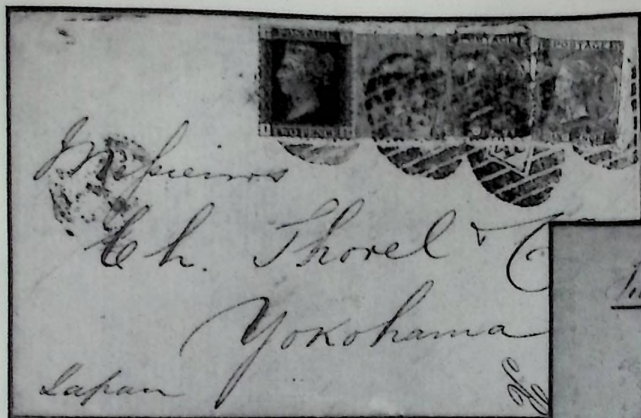 POSTAGE
TWO PENCE
POSTAGE
Messieurs
Ch. Thorel & C
Yokohama
Japan